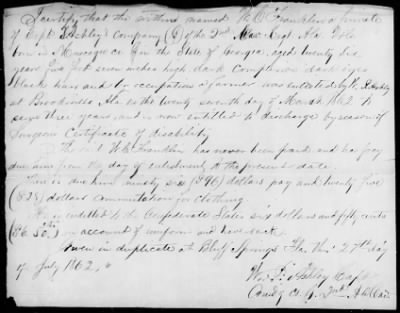 I certify that the within named W. C. Franklin a private
of Capt Ashley's Company (G) of the 2nd Regt Ala Vols
born in Muscogee co in the State of Georgia, aged twenty six
years five feet seven inches high dark complexion dark eyes
black hair and by occupation a farmer was enlisted by W. P. Ashley
at Brooksville Ala on the twenty seventh day of March 1862 to
serve three years, and is now entitled to discharge by reason of
Surgeons Certificate of disability
The said W. C. Franklin has never been paid and has pay
due him from the day of enlistment to the present date
There is due him ninety six ($96) dollars pay and twenty five
($25) dollars commutation for clothing.
He is indebted to the Confederate States six dollars and fifty cents
($6.50) on account of uniform and
Given in duplicate at Bluff Springs Fla this 27th day
of July 1862.
W. P. Ashley Capt
Comdg Co G. 2nd Ala Cav